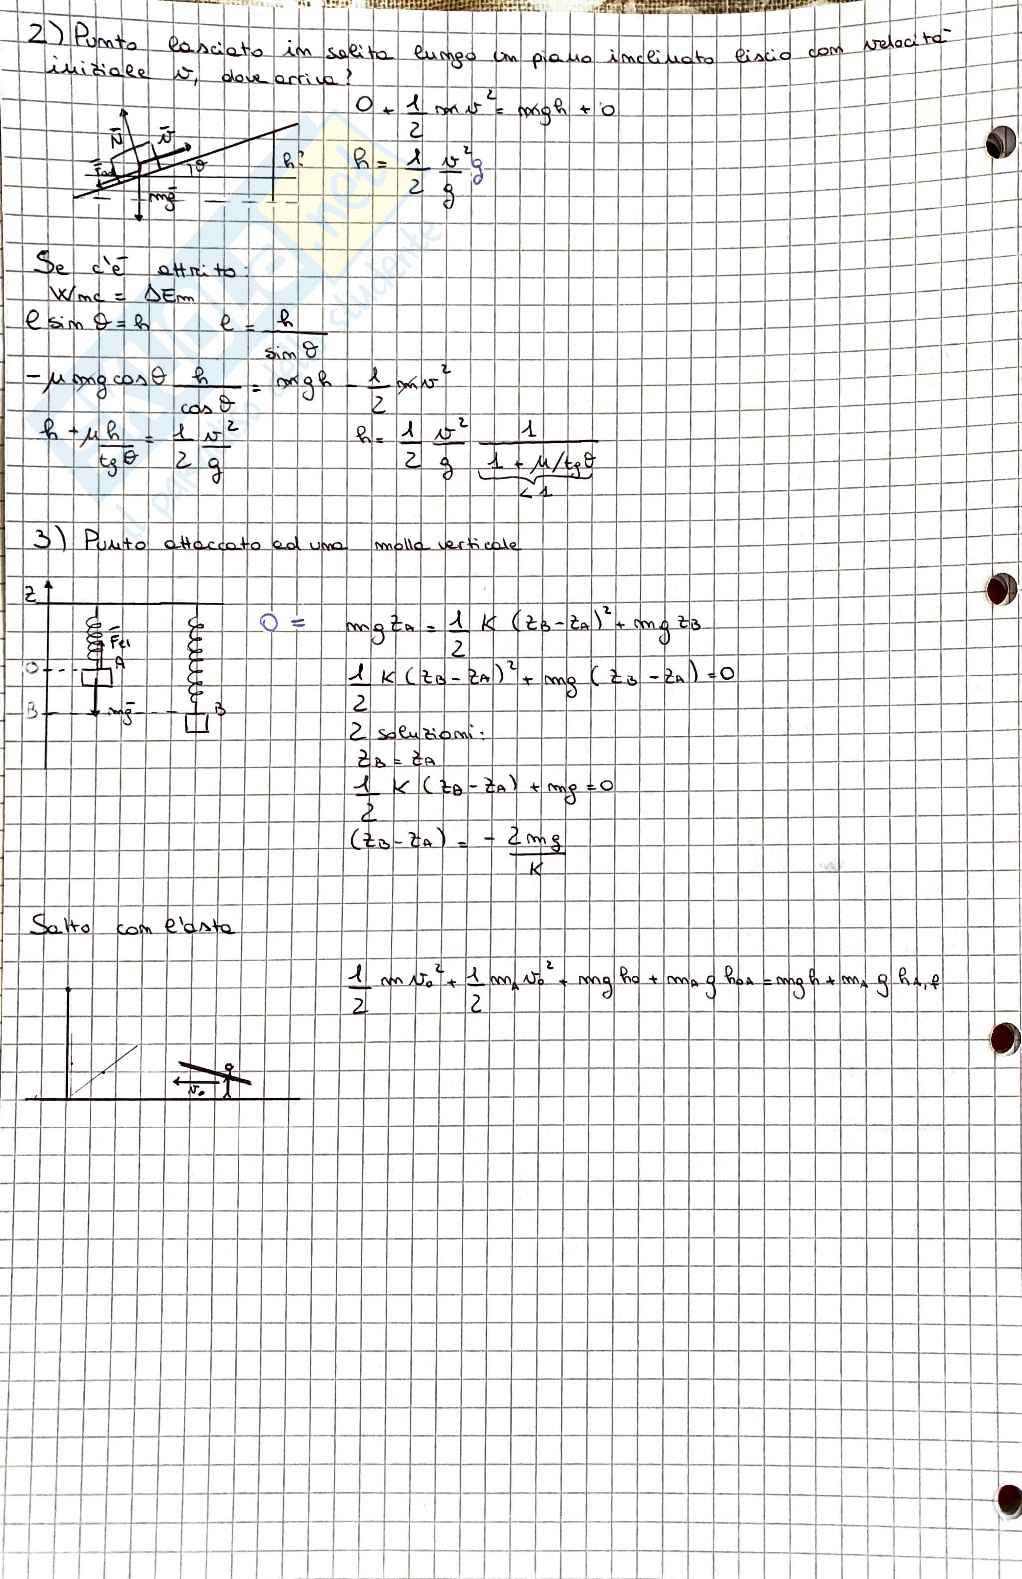 2) Punto lasciato in salita lungo un piano inclinato liscio con velocità
iniziale v, dove arriva?
0 + 1/2 mv² = mgh + 0
h = 1/2 v²/g g
N v θ h? mg
Se c'è attrito:
Wmc = ΔEm
l sin θ = h l = h/sin θ
- μ mg cos θ h/cos θ = mgh - 1/2 mv²
h + μh/tg θ = 1/2 v²/g h = 1/2 v²/g 1/(1 + μ/tgθ)
< 1
3) Punto attaccato ad una molla verticale
z
0 = mg zA = 1/2 K (zB - zA)² + mg zB
Fel
O A
1/2 K (zB - zA)² + mg (zB - zA) = 0
B mg B
2 soluzioni:
zB = zA
1/2 K (zB - zA) + mg = 0
(zB - zA) = - 2mg/K
Salto con l'asta
1/2 m v₀² + 1/2 mA v₀² + mg h₀ + mA g h₀A = mgh + mA g hA,f
v₀